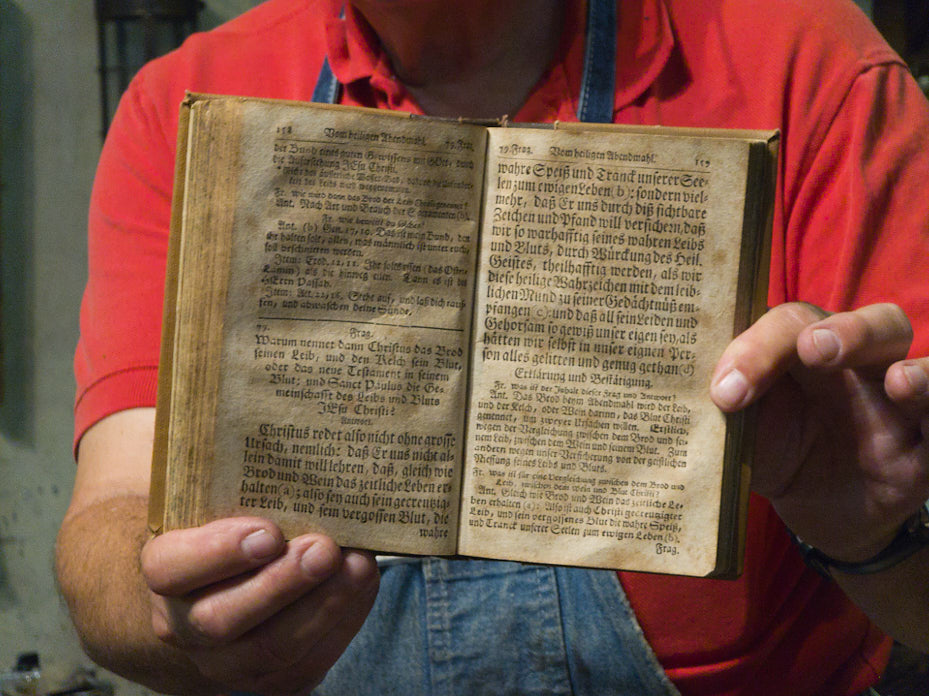 158 Vom heiligen Abendmahl. 79. Frag.
der Bund eines guten Gewissens mit Gott, durch
die Auferstehung JEsu Christi.
leit des Leibs nicht weggenommen.
Fr. wie wird dann das Brod der Leib Christi genennet?
Ant. Nach Art und Brauch der Sacramenten (b).
Fr. wie beweist du solches?
Ant. (b) Gen. 17, 10. Das ist mein Bund, den
ihr halten solt, alles, was männlich ist unter euch,
soll beschnitten werden.
Item: Exod. 12, 11. Ihr sollt essen (das Oster-
Lamm) als die hinweg eilen. Dann es ist des
HErrn Passah.
Item: Act. 22, 16. Stehe auf, und laß dich tauf-
fen, und abwaschen deine Sünde.
79. Frag.
Warum nennet dann Christus das Brod
seinen Leib, und den Kelch sein Blut,
oder das neue Testament in seinem
Blut; und Sanct Paulus die Ge-
meinschafft des Leibs und Bluts
JEsu Christi?
Antwort.
Christus redet also nicht ohne grosse
Ursach, nemlich: daß Er uns nicht al-
lein damit will lehren, daß, gleich wie
Brod und Wein das zeitliche Leben er-
halten (a); also sey auch sein gecreutzig-
ter Leib, und sein vergossen Blut, die
wahre
79. Frag. Vom heiligen Abendmahl. 159
wahre Speiß und Tranck unserer See-
len zum ewigen Leben (b); sondern viel-
mehr, daß Er uns durch diß sichtbare
Zeichen und Pfand will versichern, daß
wir so warhafftig seines wahren Leibs
und Bluts, durch Würckung des Heil.
Geistes, theilhafftig werden, als wir
diese heilige Wahrzeichen mit dem leib-
lichen Mund zu seiner Gedächtnüß em-
pfangen (c): und daß all sein Leiden und
Gehorsam so gewiß unser eigen sey, als
hätten wir selbst in unser eignen Per-
son alles gelitten und genug gethan (d)
Erklärung und Bestätigung.
Fr. was ist der Inhalt dieser Frag und Antwort?
Ant. Das Brod beym Abendmahl wird der Leib,
und der Kelch, oder Wein darinn, das Blut Christi
genennet, um zweyer Ursachen willen. Erstlich,
wegen der Vergleichung zwischen dem Brod und sei-
nem Leib, zwischen dem Wein und seinem Blut. Zum
andern wegen unser Versicherung von der geistlichen
Niessung seines Leibs und Bluts.
Fr. was ist für eine Vergleichung zwischen dem Brod und
Leib, zwischen dem Wein und Blut Christi?
Ant. Gleich wie Brod und Wein das zeitliche Le-
ben erhalten (a): Also ist auch Christi gecreutzigter
Leib, und sein vergossenes Blut die wahre Speiß,
und Tranck unserer Seelen zum ewigen Leben (b).
Frag.